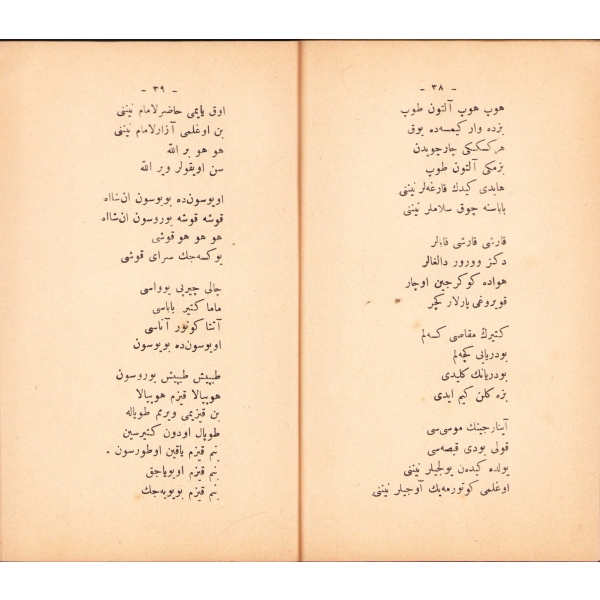 - ٣٨ -
هوپ هوپ آلتون طوپ
بزده وار كیمسه‌ده یوق
هركسككی چارچوبدن
بزمكی آلتون طوپ
هایدی كیدك قارغه‌لر نیننی
باباسنه چوق سلاملر نیننی
قارشی قارشی قابلر
دكز وورور دالغالر
هواده كوكرجین اوچار
قویروغی پارلار كچر
كتیرك مقاصی كسه‌لم
بودریایی كچه‌لم
بودریانك كلیدی
بزه كلن كیم ایدی
آینارجینك موسی‌سی
قولی بودی قیصه‌سی
یولده كیده‌ن یولجیلر نیننی
اوغلمی كوتورمه‌یك آوجیلر نیننی
- ٣٩ -
اوق یایمی حاضرلامام نیننی
بن اوغلمی آزارلامام نیننی
هو هو بر الله
سن اویقولر ویر الله
اویوسون‌ده بویوسون ان‌شاالله
قوشه قوشه یوروسون ان‌شاالله
هو هو هو قوشی
یوكسه‌جك سرای قوشی
چالی چیرپی یوواسی
ماما كتیر باباسی
آتتا كوتور آناسی
اویوسون‌ده بویوسون
طیپیش طیپیش یوروسون
هوپپالا قیزم هوپپالا
بن قیزیمی ویرمم طوپاله
طوپال اودون كتیرسین
بنم قیزم یاقین اوطورسون .
بنم قیزم اویویاجق
بنم قیزم بویویه‌جك